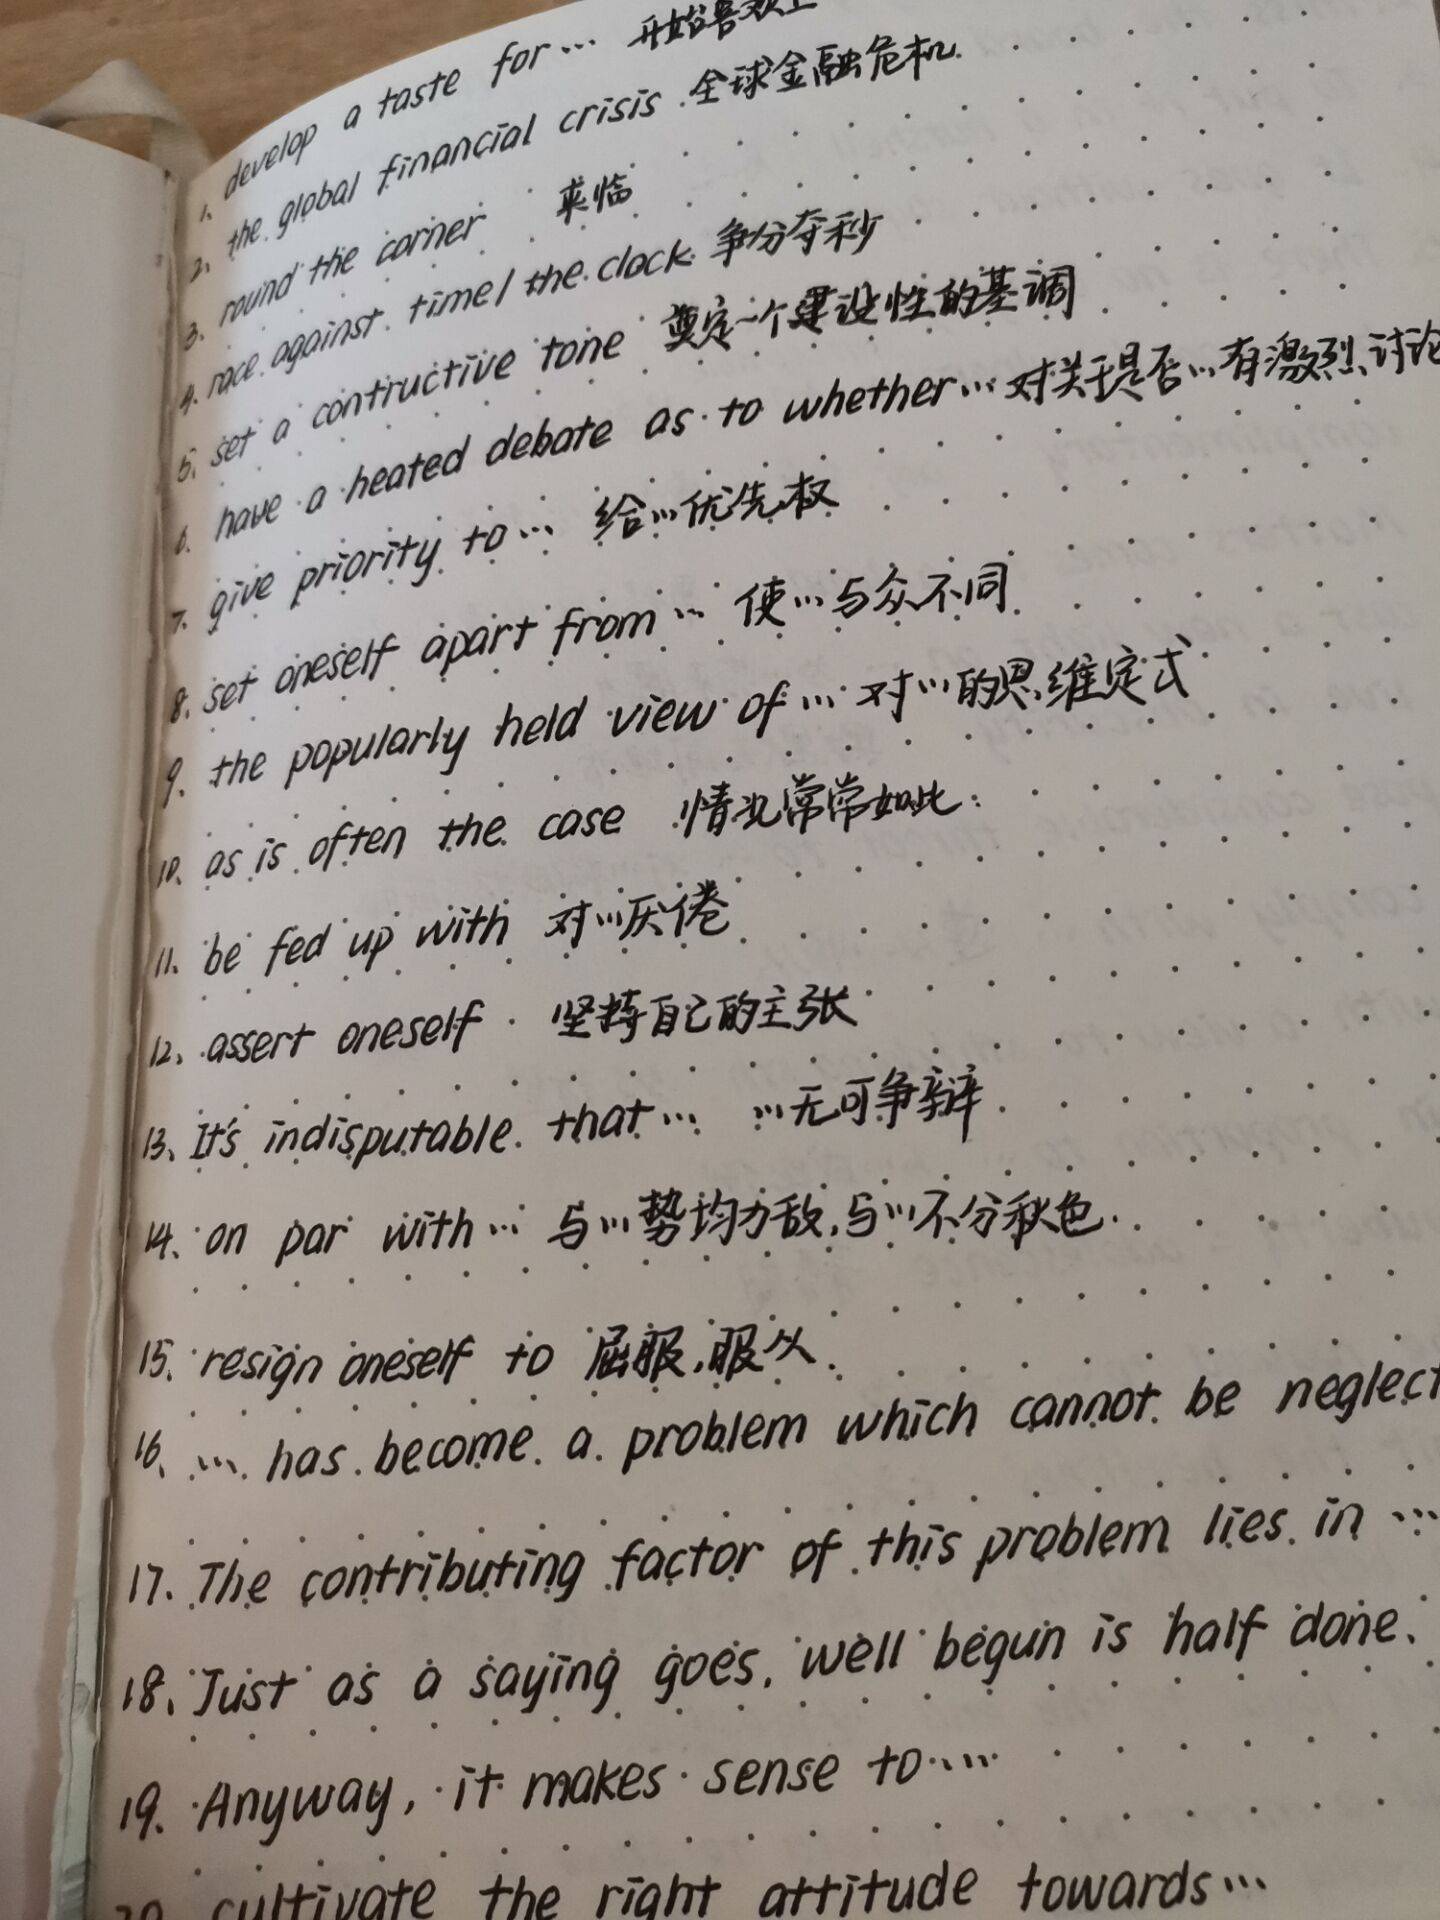 1. develop a taste for… 开始喜欢上
2. the global financial crisis 全球金融危机
3. round the corner 来临
4. race against time / the clock 争分夺秒
5. set a contructive tone 奠定一个建设性的基调
6. have a heated debate as to whether… 对关于是否…有激烈讨论
7. give priority to… 给…优先权
8. set oneself apart from… 使…与众不同
9. the popularly held view of… 对…的思维定式
10. as is often the case 情况常常如此
11. be fed up with 对…厌倦
12. assert oneself 坚持自己的主张
13. It's indisputable that… …无可争辩
14. on par with… 与…势均力敌,与…不分秋色
15. resign oneself to 屈服,服从
16. … has become a problem which cannot be neglect
17. The contributing factor of this problem lies in …
18. Just as a saying goes, well begun is half done.
19. Anyway, it makes sense to…
20. cultivate the right attitude towards…